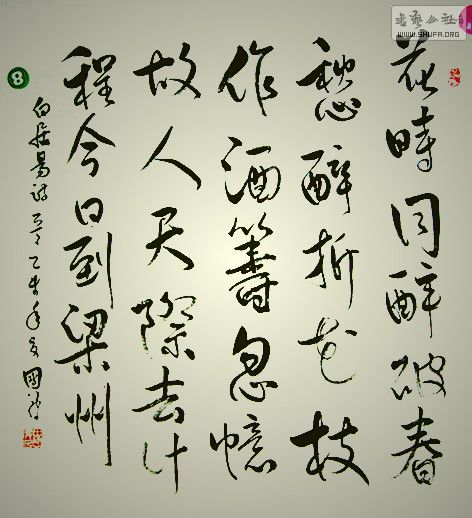 花時同醉破春
愁醉折花枝
作酒籌忽憶
故人天際去計
程今日到梁州
白居易詩 乙未年夏國
8
书艺公社
WWW.SHUFA.ORG